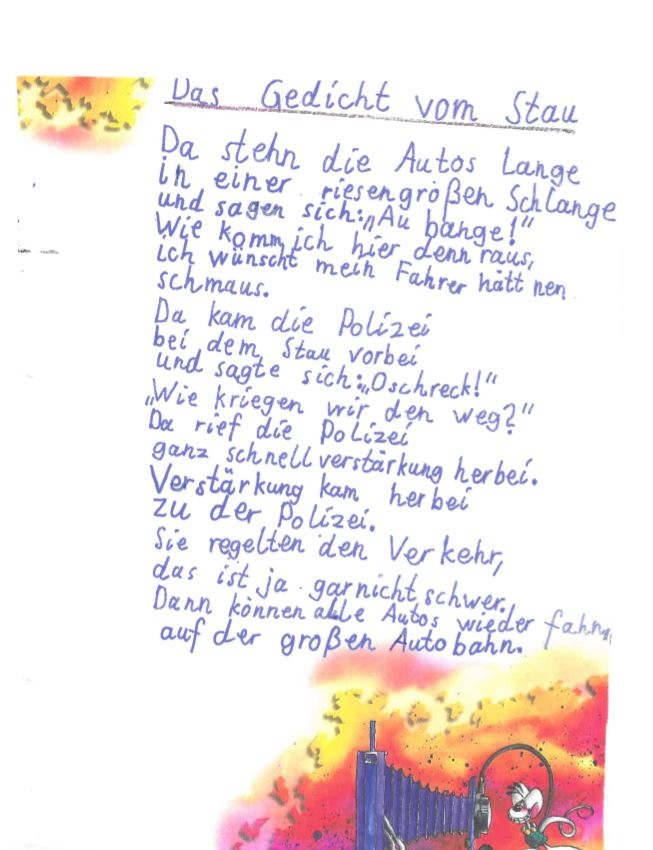 Das Gedicht vom Stau
Da stehn die Autos Lange
in einer riesengroßen Schlange
und sagen sich:„Au bange!“
Wie komm ich hier denn raus,
ich wünscht mein Fahrer hätt nen
schmaus.
Da kam die Polizei
bei dem Stau vorbei
und sagte sich:„Oschreck!“
„Wie kriegen wir den weg?“
Da rief die Polizei
ganz schnell verstärkung herbei.
Verstärkung kam herbei
zu der Polizei.
Sie regelten den Verkehr,
das ist ja garnicht schwer.
Dann können alle Autos wieder fahn,
auf der großen Autobahn.